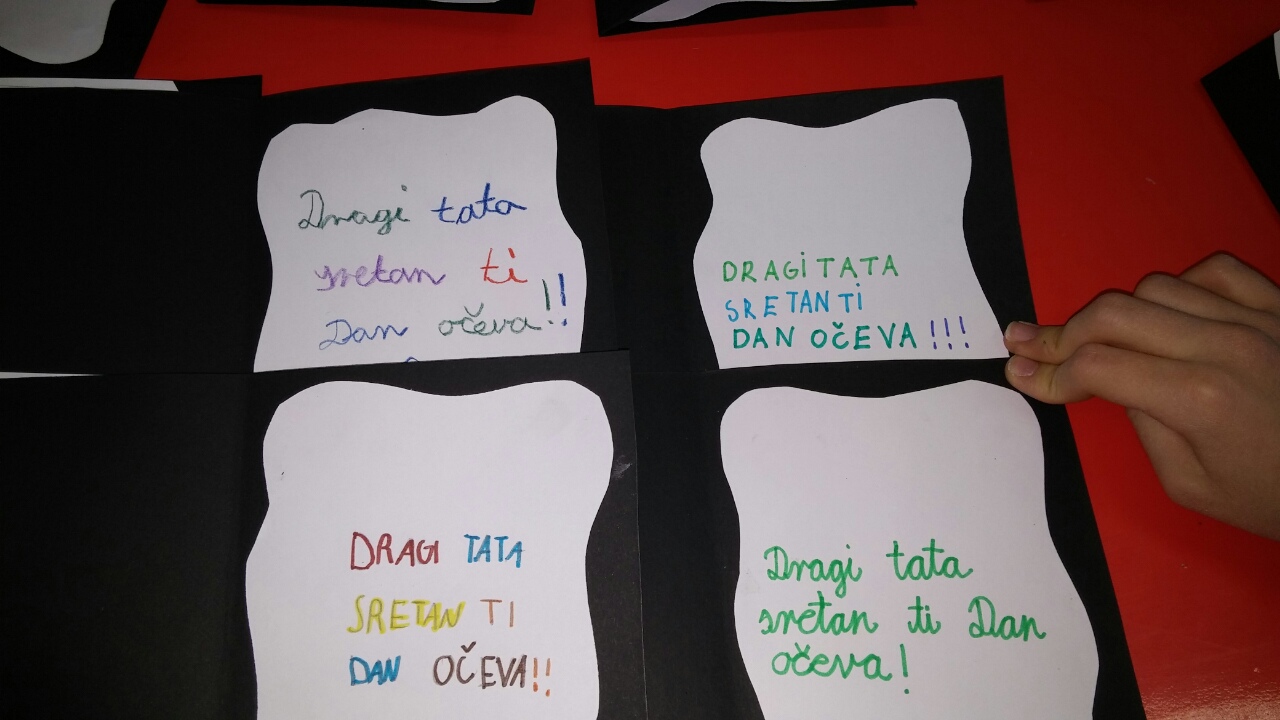 Dragi tata
sretan ti
Dan očeva!!
DRAGI TATA
SRETAN TI
DAN OČEVA!!!
DRAGI TATA
SRETAN TI
DAN OČEVA!!
Dragi tata
sretan ti Dan
očeva!